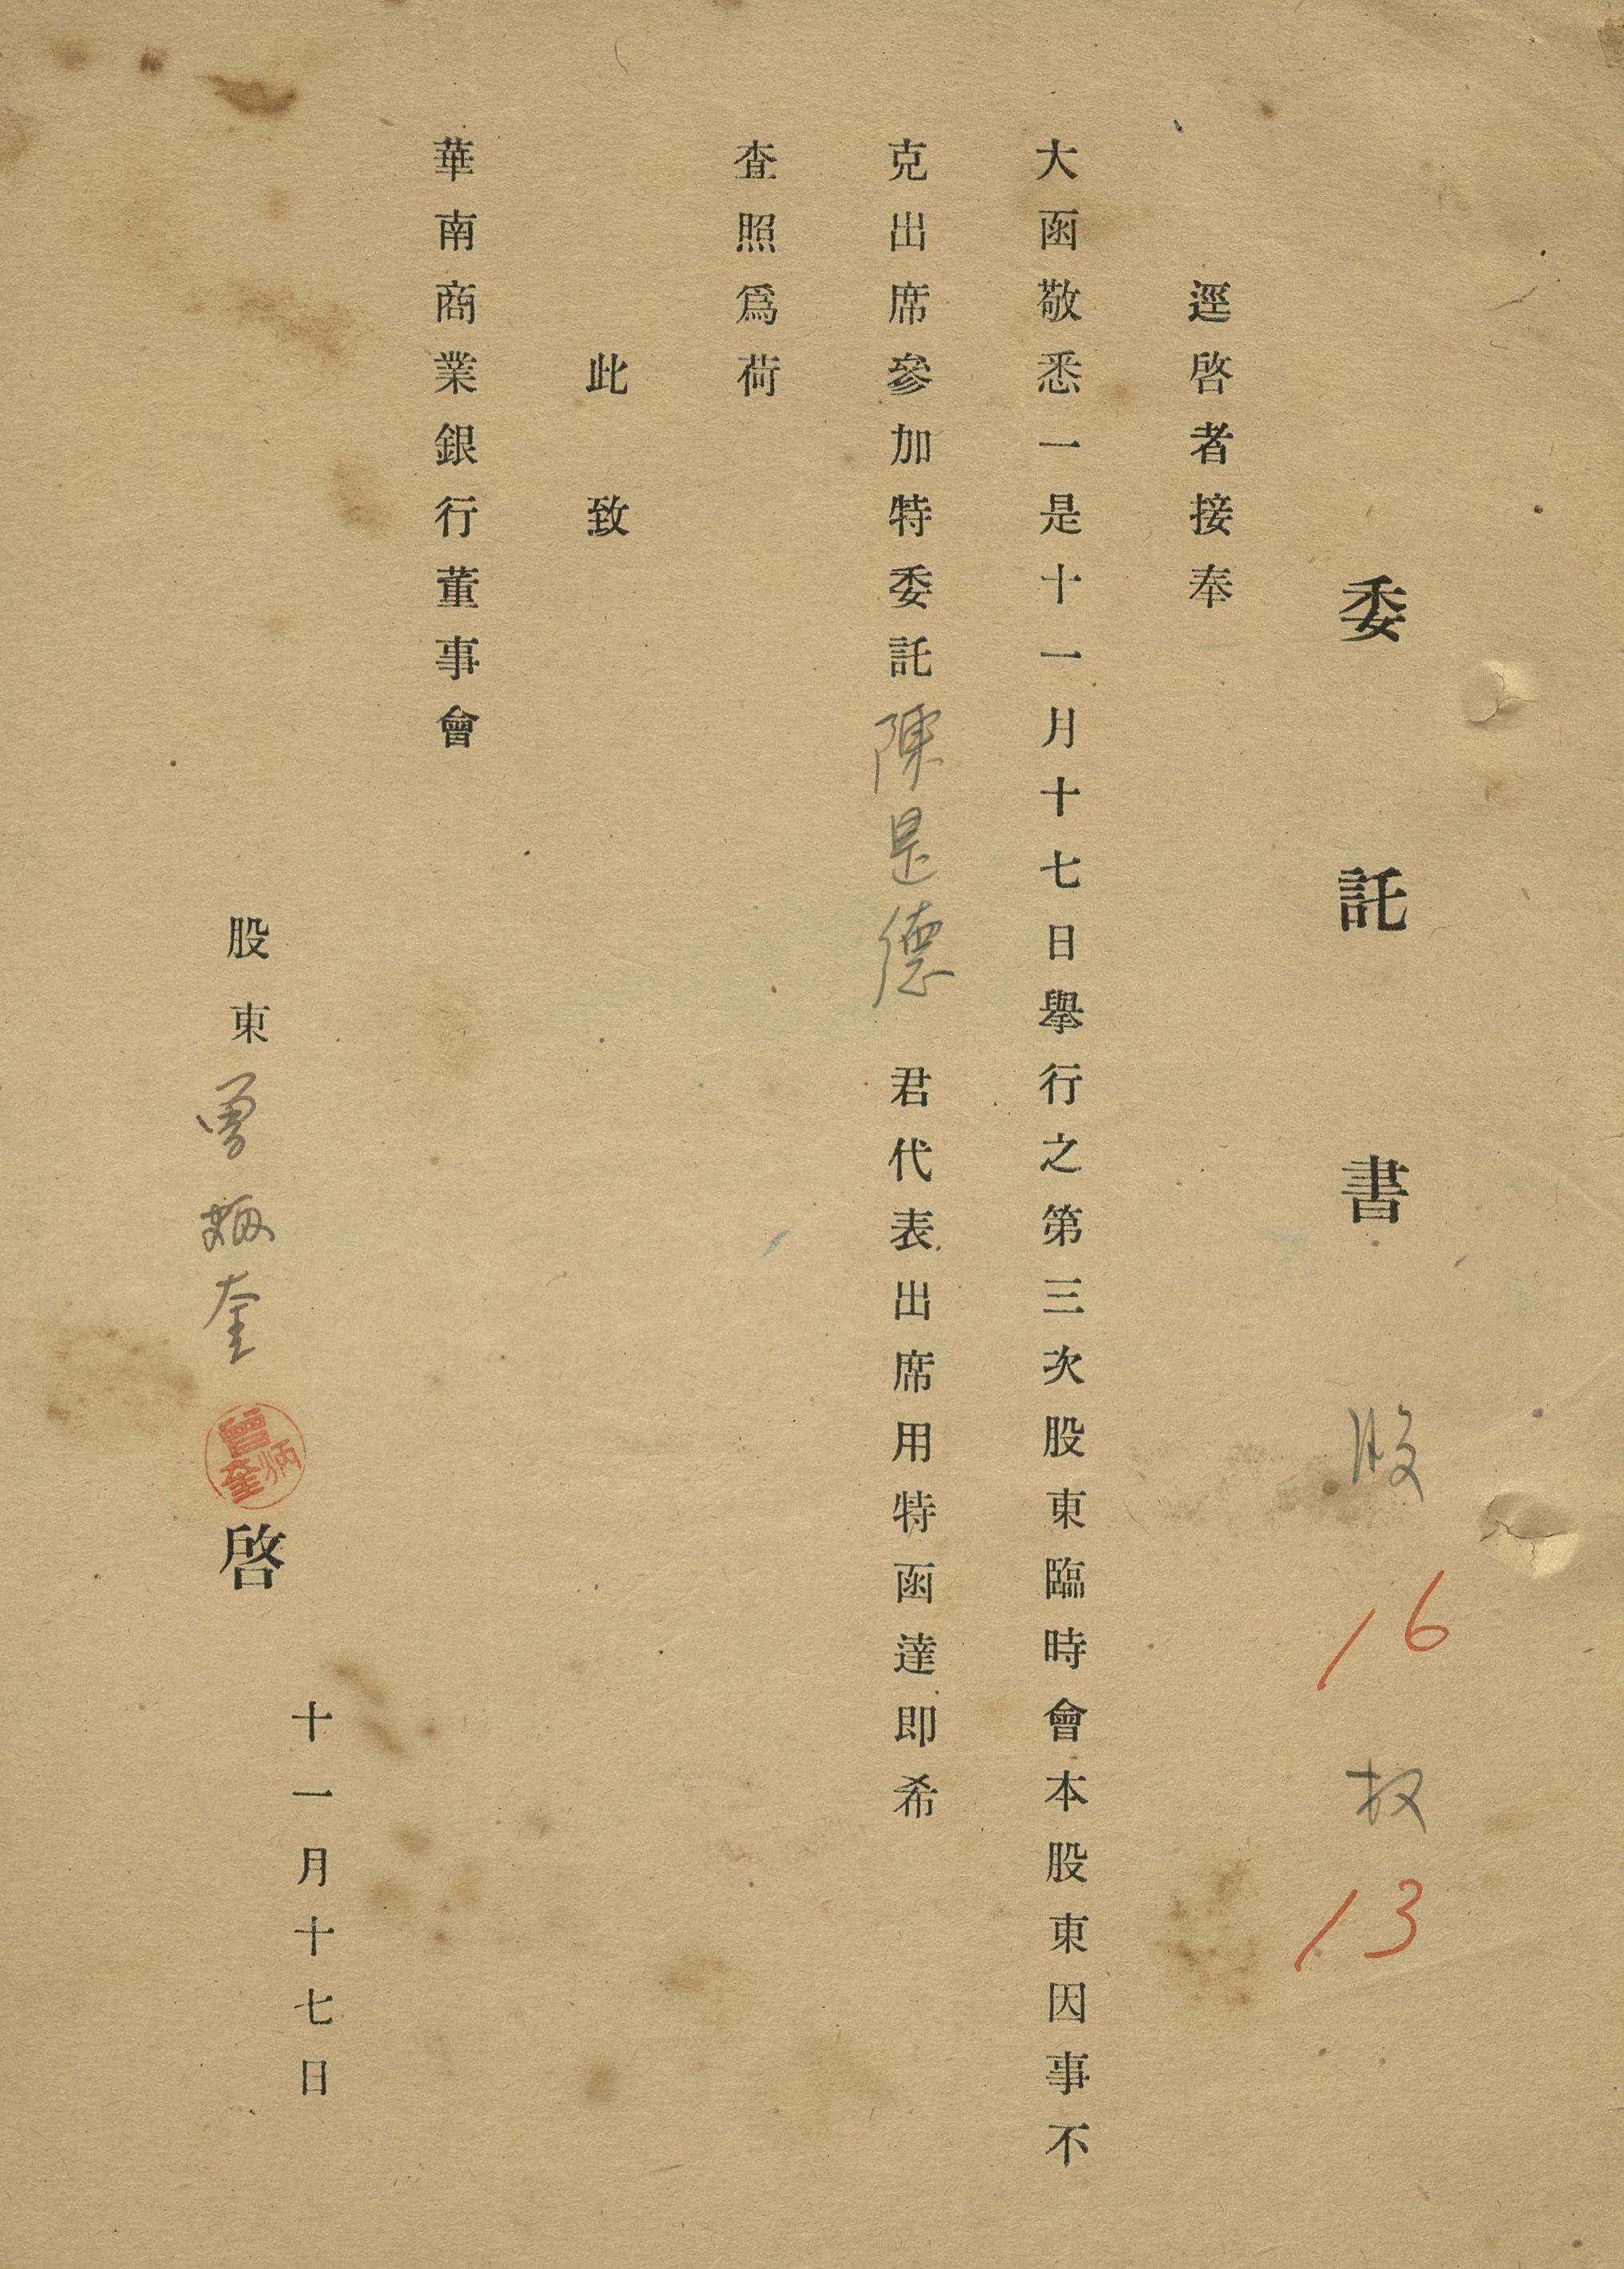 委託書 股 16 权 13
逕啓者接奉
大函敬悉一是十一月十七日舉行之第三次股東臨時會本股東因事不
克出席參加特委託陳是德君代表出席用特函達即希
査照爲荷
此致
華南商業銀行董事會
十一月十七日
股東曾炳奎啓
曾炳奎